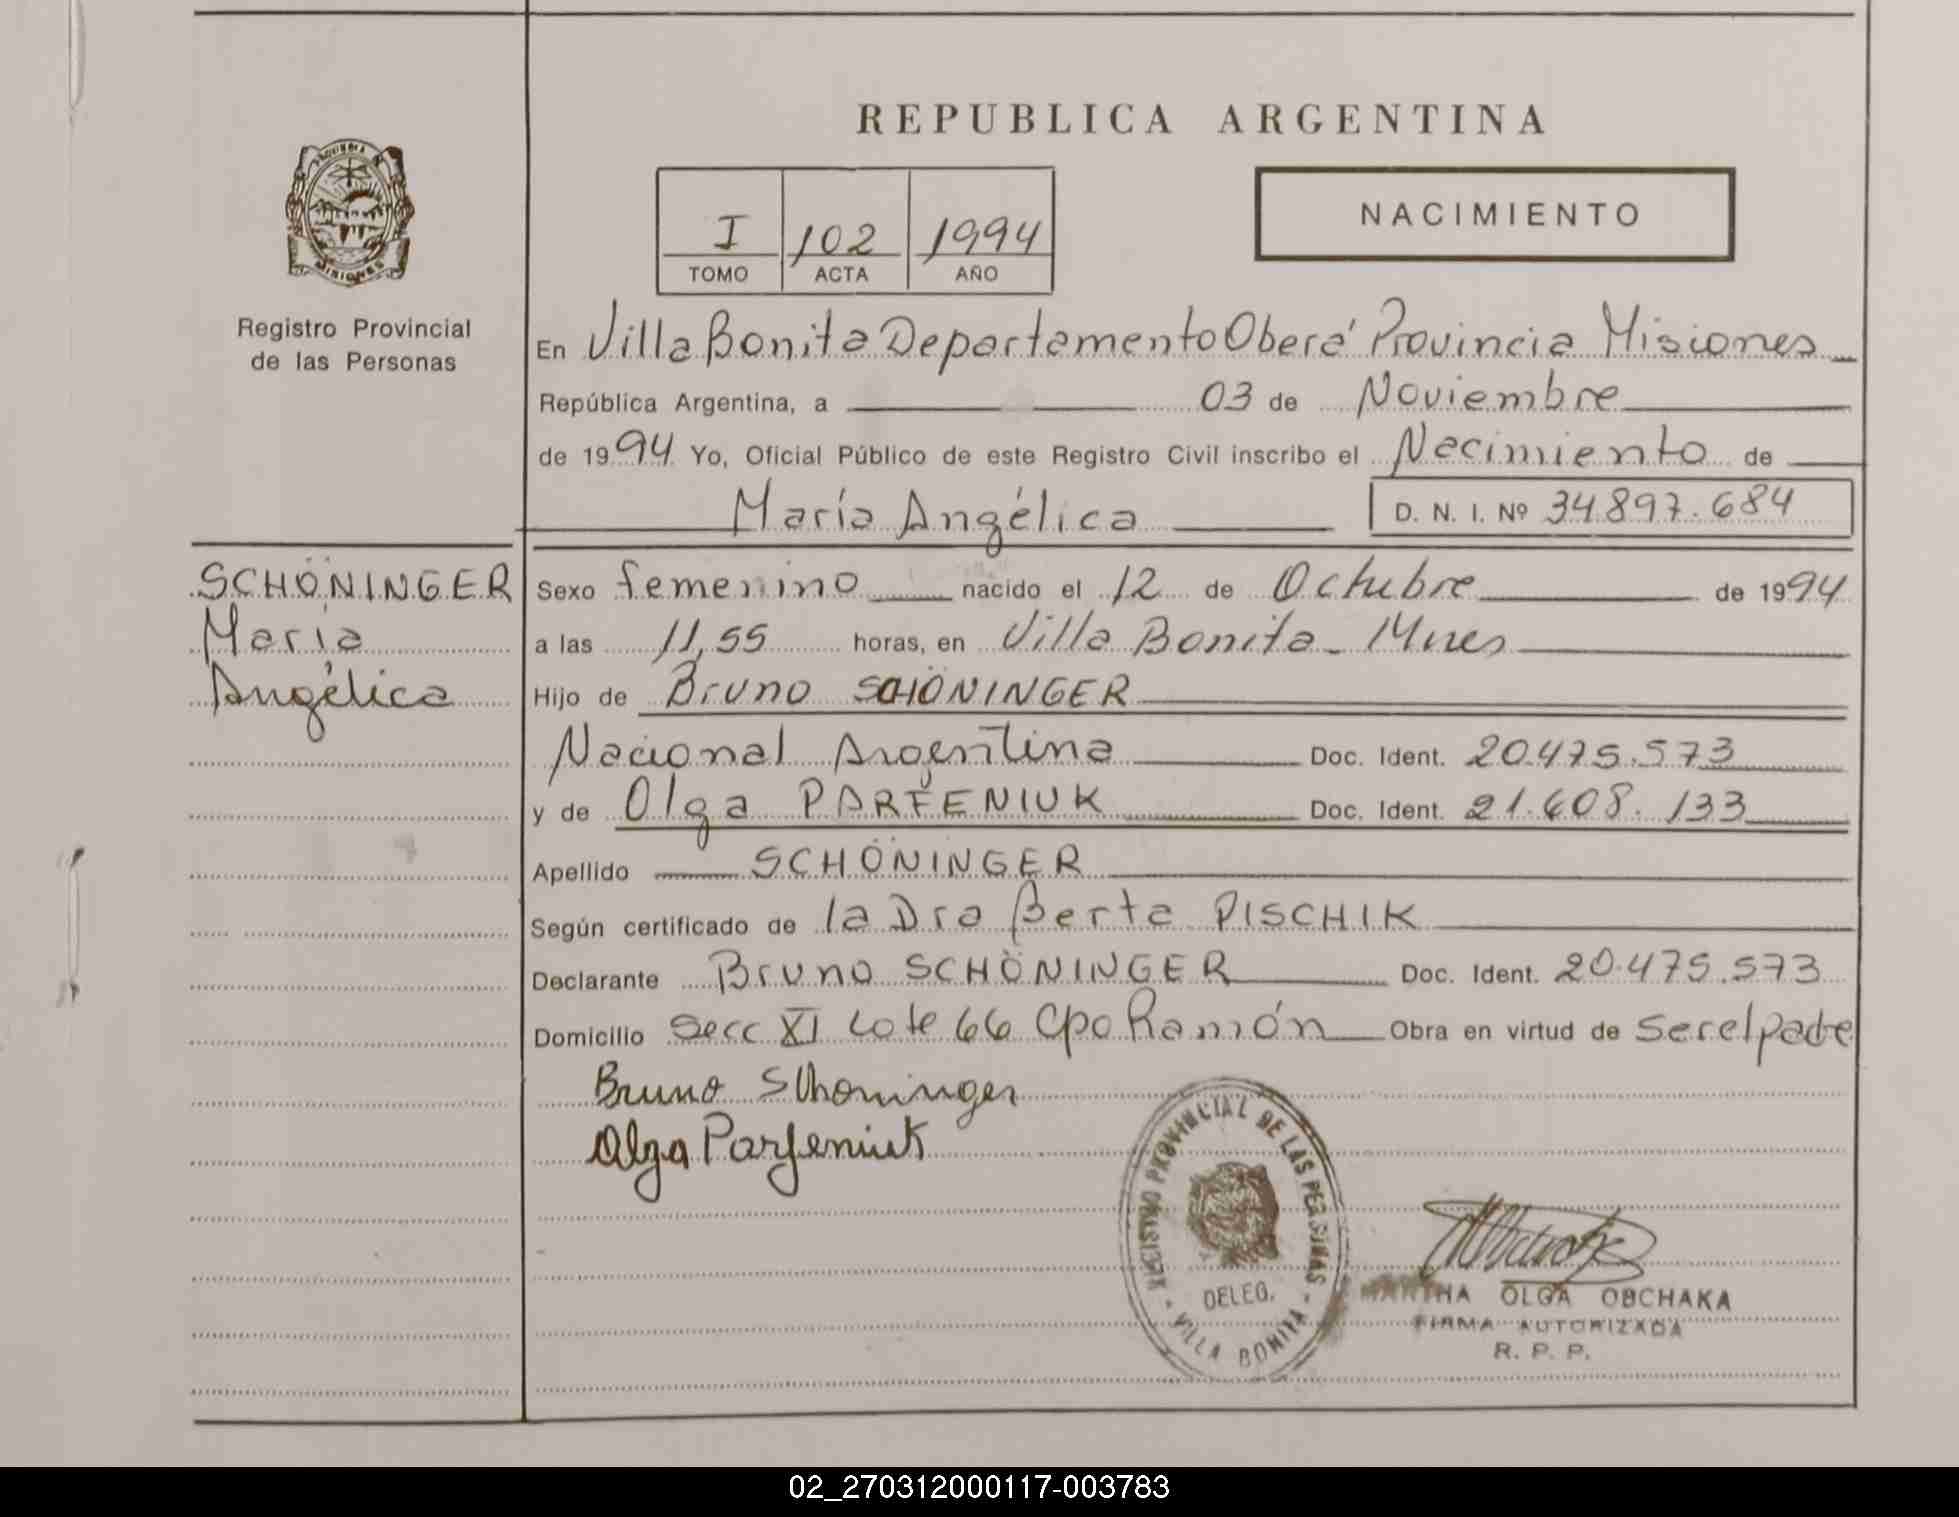 REPUBLICA ARGENTINA
PROVINCIA DE
MISIONES
Registro Provincial
de las Personas
I 102 1994
TOMO ACTA AÑO
NACIMIENTO
En Villa Bonita Departamento Oberá Provincia Misiones
República Argentina, a 03 de Noviembre
de 1994 Yo, Oficial Público de este Registro Civil inscribo el Nacimiento de
María Angélica D. N. I. Nº 34.897.684
SCHÖNINGER
María
Angélica
Sexo femenino nacido el 12 de Octubre de 1994
a las 11,55 horas, en Villa Bonita - Mnes
Hijo de Bruno SCHÖNINGER
Nacional Argentina Doc. Ident. 20.475.573
y de Olga PARFENIUK Doc. Ident. 21.608.133
Apellido SCHÖNINGER
Según certificado de la Dra Berta PISCHIK
Declarante Bruno SCHÖNINGER Doc. Ident. 20.475.573
Domicilio Secc XI Lote 66 Cpo Ramón Obra en virtud de Ser el padre
Bruno Schoninger
Olga Parfeniuk
REGISTRO PROVINCIAL DE LAS PERSONAS
DELEG.
VILLA BONITA
MARTHA OLGA OBCHAKA
FIRMA AUTORIZADA
R. P. P.
02_270312000117-003783